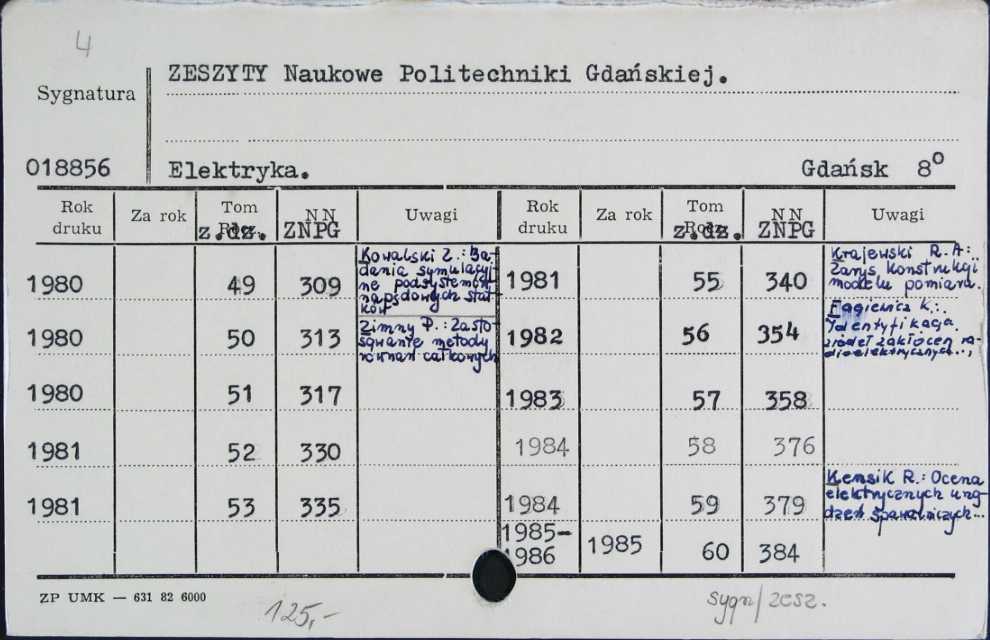 4
ZESZYTY Naukowe Politechniki Gdańskiej.
Sygnatura
018856 Elektryka. Gdańsk 8°
Rok druku Za rok Tom z.dz. NN ZNPG Uwagi Rok druku Za rok Tom z.dz. NN ZNPG Uwagi
1980 49 309
Kowalski Z.: Ba-
dania symulacyj
ne podsystemów
napędowych stat
ków
1981 55 340
Krajewski R. A:
Zarys konstrukcji
modelu pomiaru.
1980 50 313
Zimny P.: Zasto-
sowanie metody
równań całkowych
1982 56 354
Fagiewicz K.:
Identyfikacja
źródeł zakłóceń ra-
dioelektrycznych...
1980 51 317 1983 57 358
1981 52 330 1984 58 376
1981 53 335 1984 59 379
Kensik R.: Ocena
elektrycznych urzą-
dzeń spawalniczych...
1985-
1986 1985 60 384
ZP UMK — 631 82 6000
125,-
sygn/zesz.